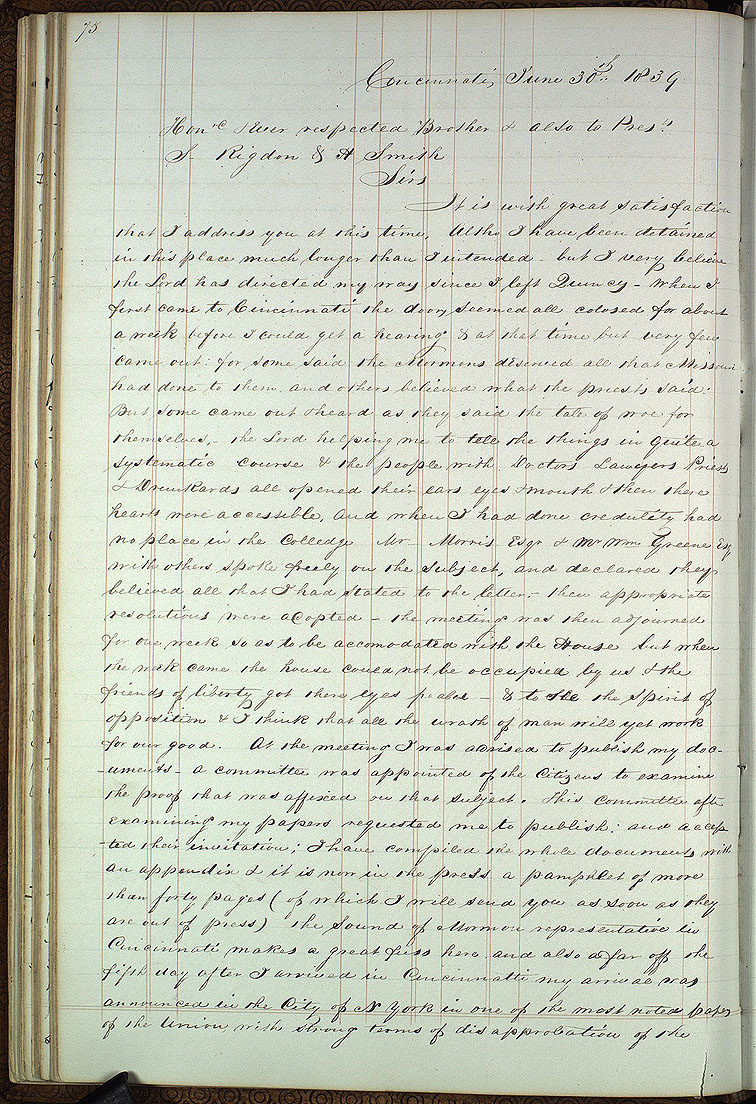 75
Cincinnati June 30th 1839
Honrd & ever respected Brother & also to Prest.
S. Rigdon & H Smith
Sirs
It is with great satisfaction
that I address you at this time, Altho I have been detained
in this place much longer than I intended - but I very believe
the Lord has directed my way since I left Quincy - When I
first came to Cincinnati the doors seemed all colosed for about
a week before I could get a hearing & at that time but very few
came out: for some said the Mormons deserved all that Missouri
had done to them, and others believed what the priests said:
But some came out & heard as they said the tale of woe for
themselves, - the Lord helping me to tell the things in quite a
systematic course & the people with Doctors Lawyers Priests
& Drunkards all opened their ears eyes & mouth & then there
hearts were accessible, and when I had done credulity had
no place in the Colledge Mr Morris Esqr & Mr Wm Greene Esq
with others spoke freely on the subject, and declared they
believed all that I had stated to the letter. - then appropriate
resolutions were adopted - the meeting was then adjourned
for one week so as to be accomodated with the House but when
the week came the house could not be occupied by us & the
friends of liberty got there eyes pealed - & to see the spirit of
opposition & I think that all the wrath of man will yet work
for our good. At the meeting I was advised to publish my doc-
-uments - a committee was appointed of the Citizens to examine
the proof that was affixed on that subject. This committee aft
examining my papers requested me to publish; and accep-
-ted their invitation; I have compiled the whole documents with
an appendix & it is now in the press a pamphlet of more
than forty pages (of which I will send you as soon as they
are out of press) the sound of Mormon representative in
Cincinnati makes a great fuss here and also afar off the
fifth day after I arrived in Cincinnatti my arrival was
announced in the City of N York in one of the most noted papers
of the Union with strong terms of disapprobation of the